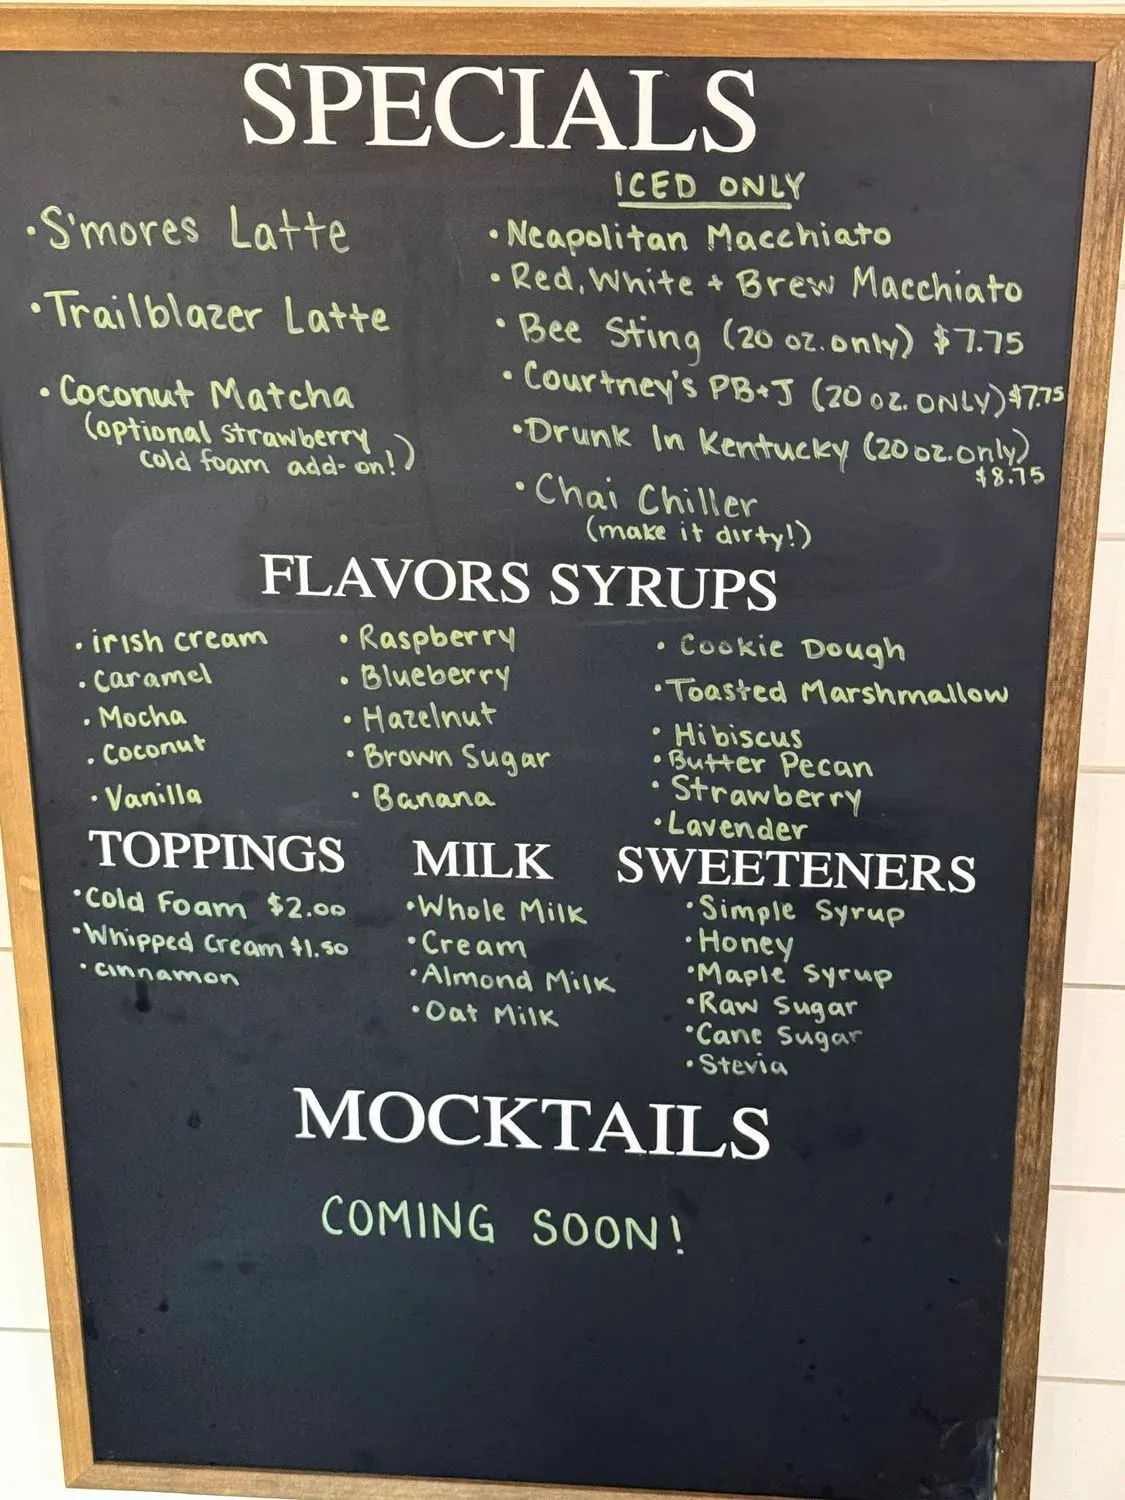 SPECIALS
• S'mores Latte
• Trailblazer Latte
• Coconut Matcha
(optional strawberry
cold foam add-on!)
ICED ONLY
• Neapolitan Macchiato
• Red, White + Brew Macchiato
• Bee Sting (20 oz. only) $7.75
• Courtney's PB+J (20 oz. ONLY) $7.75
• Drunk In Kentucky (20 oz. only)
$8.75
• Chai Chiller
(make it dirty!)
FLAVORS SYRUPS
• irish cream
• caramel
• Mocha
• coconut
• Vanilla
• Raspberry
• Blueberry
• Hazelnut
• Brown Sugar
• Banana
• Cookie Dough
• Toasted Marshmallow
• Hibiscus
• Butter Pecan
• Strawberry
• Lavender
TOPPINGS
• Cold Foam $2.00
• Whipped Cream $1.50
• cinnamon
MILK
• Whole Milk
• Cream
• Almond Milk
• Oat Milk
SWEETENERS
• Simple Syrup
• Honey
• Maple Syrup
• Raw Sugar
• Cane Sugar
• Stevia
MOCKTAILS
COMING SOON!